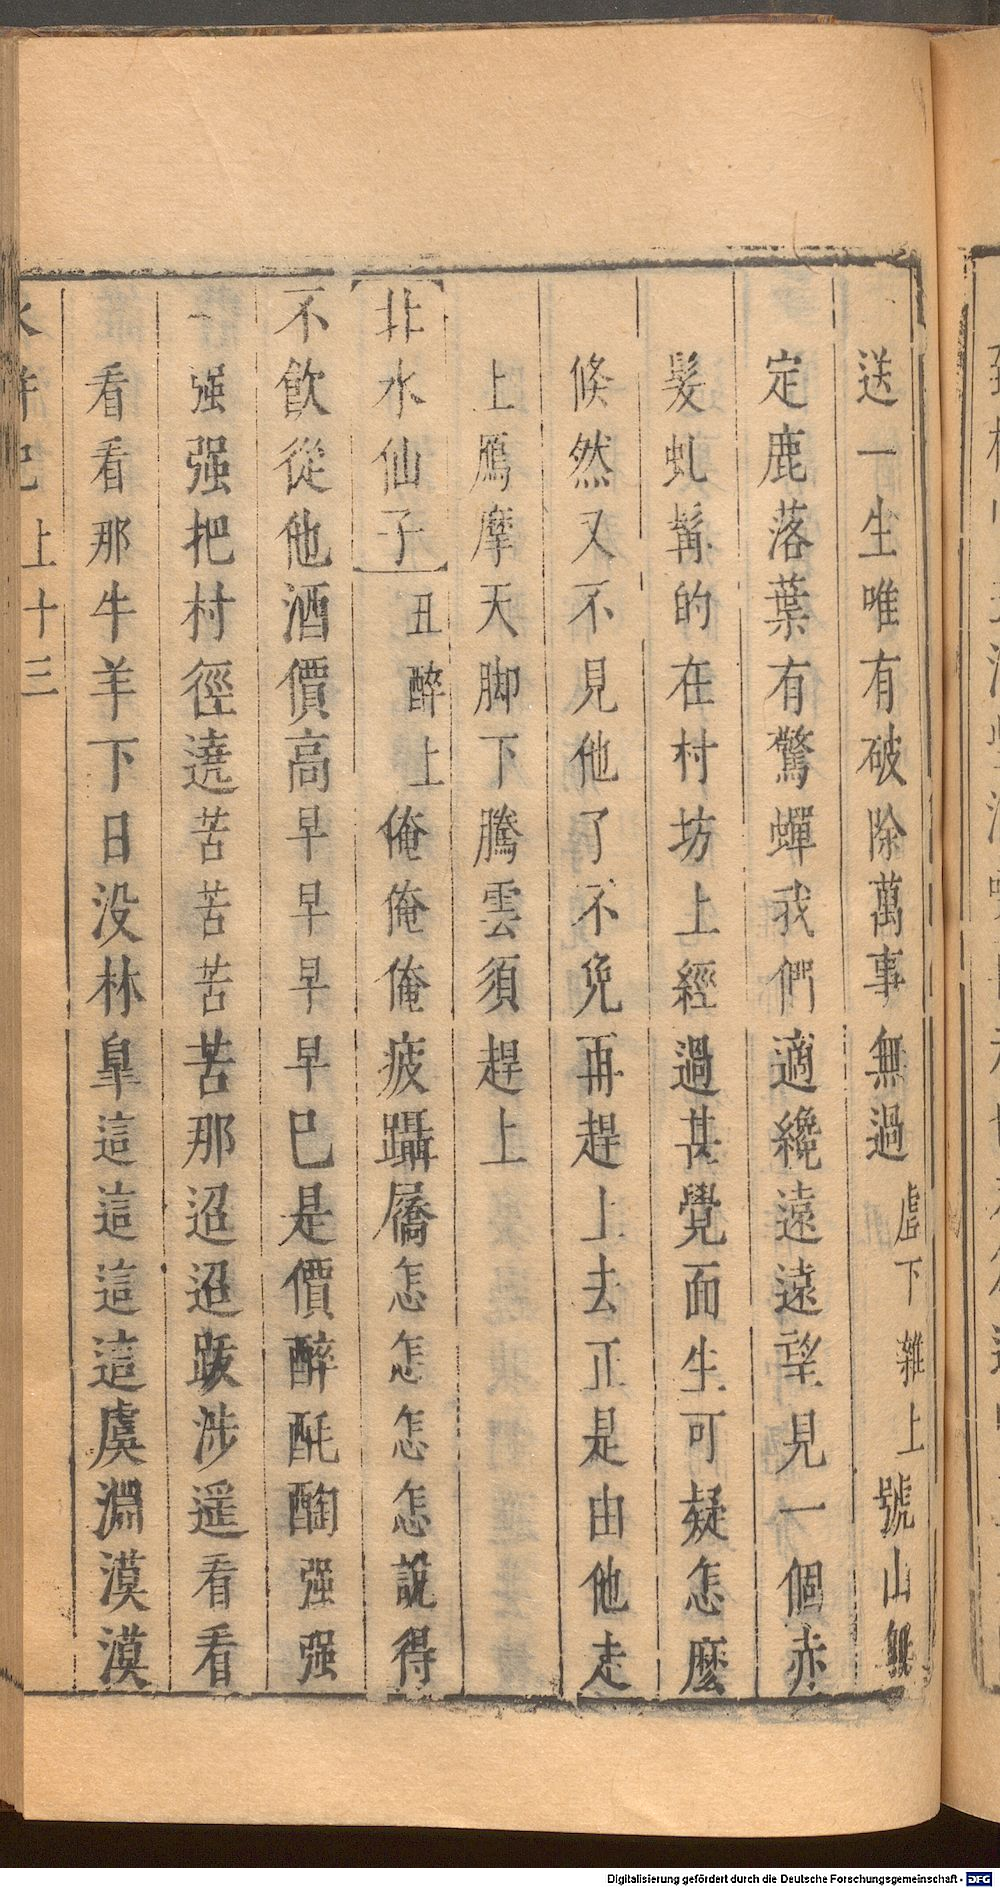 送一生唯有破除萬事無過虗下雜上號山無
定鹿落葉有驚蟬我們適纔遠遠望見一個赤
髮虬髯的在村坊上經過甚覺面生可疑怎麼
倐然又不見他了不免再趕上去正是由他走
上鴈摩天脚下騰雲須趕上
北水仙子丑醉上俺俺俺疲躡屩怎怎怎怎說得
不飲從他酒價高早早早早巳是價醉酕醄强强
强强把村徑遶苦苦苦苦那迢迢跋涉遥看看
看看那牛羊下日没林臯這這這這虞淵漠漠
水滸記上十三
Digitalisierung gefördert durch die Deutsche Forschungsgemeinschaft - DFG